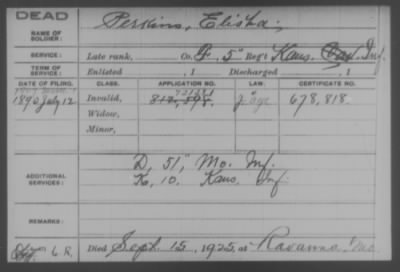 DEAD
NAME OF SOLDIER: Perkins, Elisha;
SERVICE: Late rank, Co. G, 5" Reg't Kans. Cav. Inf.
TERM OF SERVICE: Enlisted , 1 Discharged , 1
DATE OF FILING. CLASS. APPLICATION NO. LAW. CERTIFICATE NO.
1890 July 12 Invalid, 678,818.
Widow,
Minor,
ADDITIONAL SERVICES: D, 51," Mo. Inf.
K, 10. Kans. Inf.
REMARKS:
6 R. Died Sept. 15, 1925, at Ravanna, Mo.